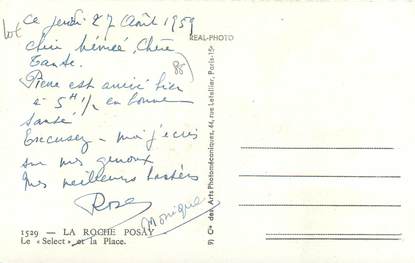 Ce jeudi 27 Août 1959
REAL-PHOTO
Chère
Tante.
86
Pierre est arrivé hier
à 5H 1/2 en bonne
santé
Excusez-moi j'écris
sur mes genoux
Mes meilleurs
Rose
Monique
1529 — LA ROCHE POSAY
Le « Select » et la Place.
Cie des Arts Photomécaniques, 44, rue Letellier, Paris-15e